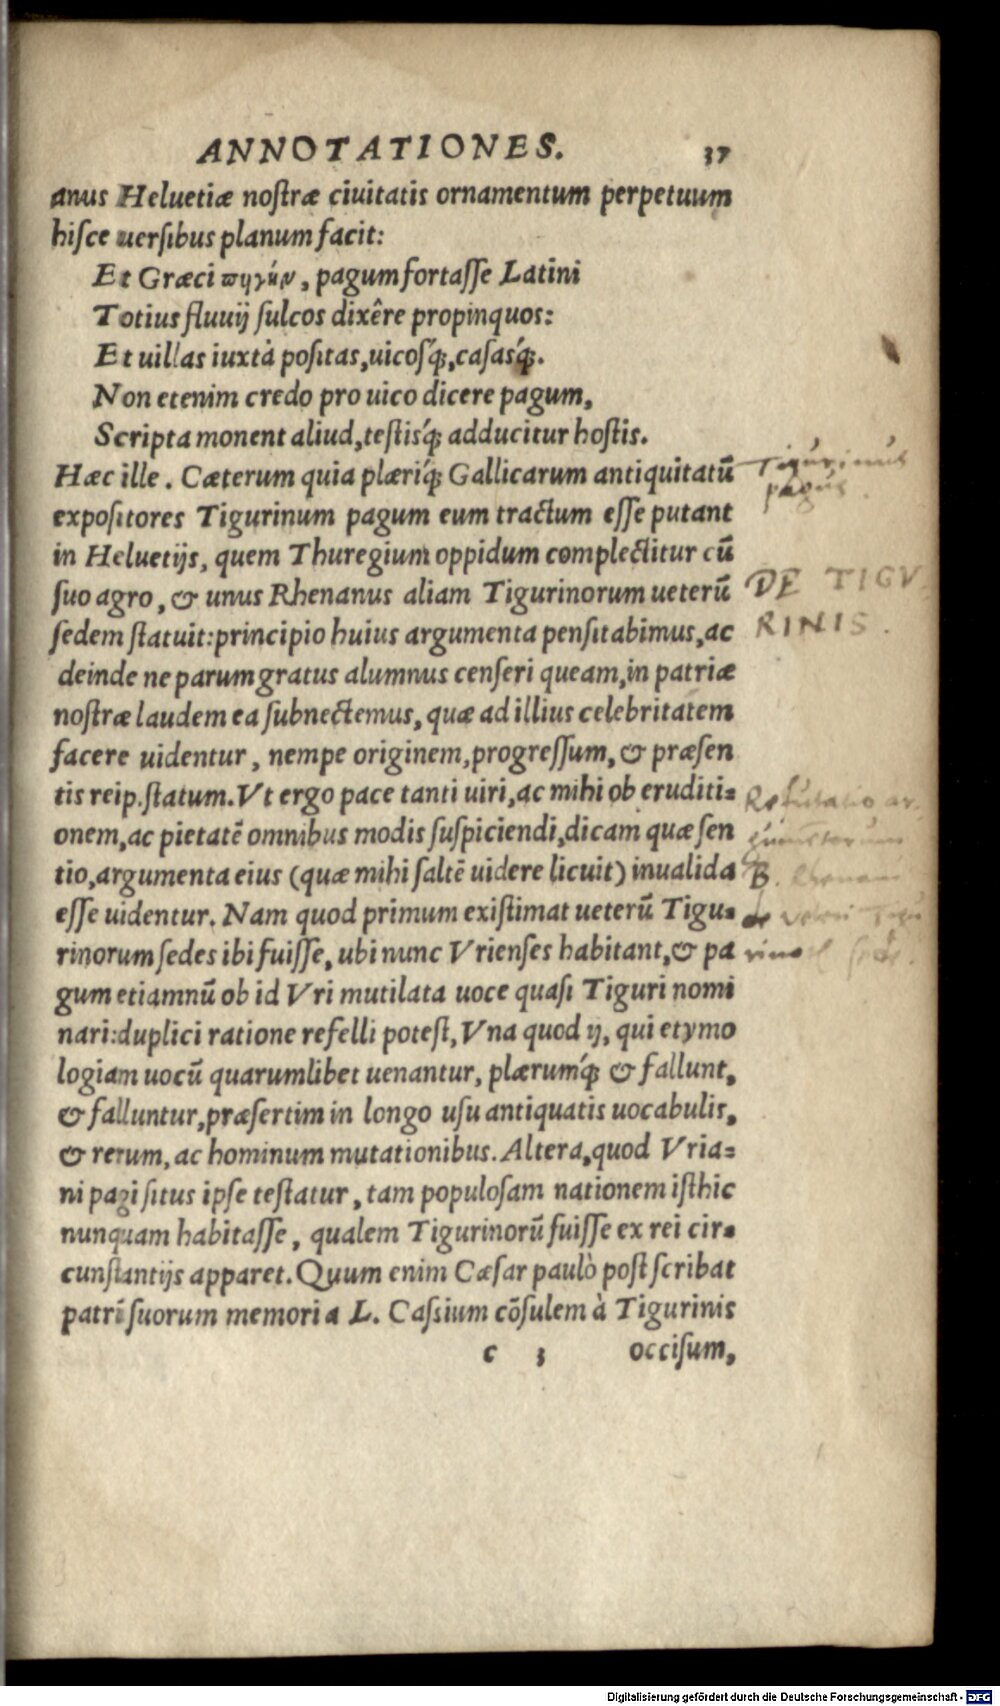 ANNOTATIONES. 37
anus Heluetiæ nostræ ciuitatis ornamentum perpetuum
hisce uersibus planum facit:
Et Græci πηγὴν, pagum fortasse Latini
Totius fluuij sulcos dixêre propinquos:
Et uillas iuxtà positas, uicosq́;, casasq́;.
Non etenim credo pro uico dicere pagum,
Scripta monent aliud, testisq́; adducitur hostis.
Hæc ille. Cæterum quia plæriq́; Gallicarum antiquitatū
expositores Tigurinum pagum eum tractum esse putant
in Heluetijs, quem Thuregium oppidum complectitur cū
suo agro, & unus Rhenanus aliam Tigurinorum ueterū
sedem statuit: principio huius argumenta pensitabimus, ac
deinde ne parum gratus alumnus censeri queam, in patriæ
nostræ laudem ea subnectemus, quæ ad illius celebritatem
facere uidentur, nempe originem, progressum, & præsen
tis reip. statum. Vt ergo pace tanti uiri, ac mihi ob eruditi=
onem, ac pietatē omnibus modis suspiciendi, dicam quæ sen
tio, argumenta eius (quæ mihi saltē uidere licuit) inualida
esse uidentur. Nam quod primum existimat ueterū Tigu=
rinorum sedes ibi fuisse, ubi nunc Vrienses habitant, & pa
gum etiamnū ob id Vri mutilata uoce quasi Tiguri nomi
nari: duplici ratione refelli potest, Vna quod ij, qui etymo
logiam uocū quarumlibet uenantur, plærumq́; & fallunt,
& falluntur, præsertim in longo usu antiquatis uocabulis,
& rerum, ac hominum mutationibus. Altera, quod Vria=
ni pagi situs ipse testatur, tam populosam nationem isthic
nunquam habitasse, qualem Tigurinorū fuisse ex rei cir=
cunstantijs apparet. Quum enim Cæsar paulò post scribat
patrū suorum memoria L. Cassium cōsulem à Tigurinis
c 3 occisum,
Tigurinus
pagus.
DE TIGV
RINIS.
Refutatio ar
gumētorum
B. Rhenani
de veteri Tigu